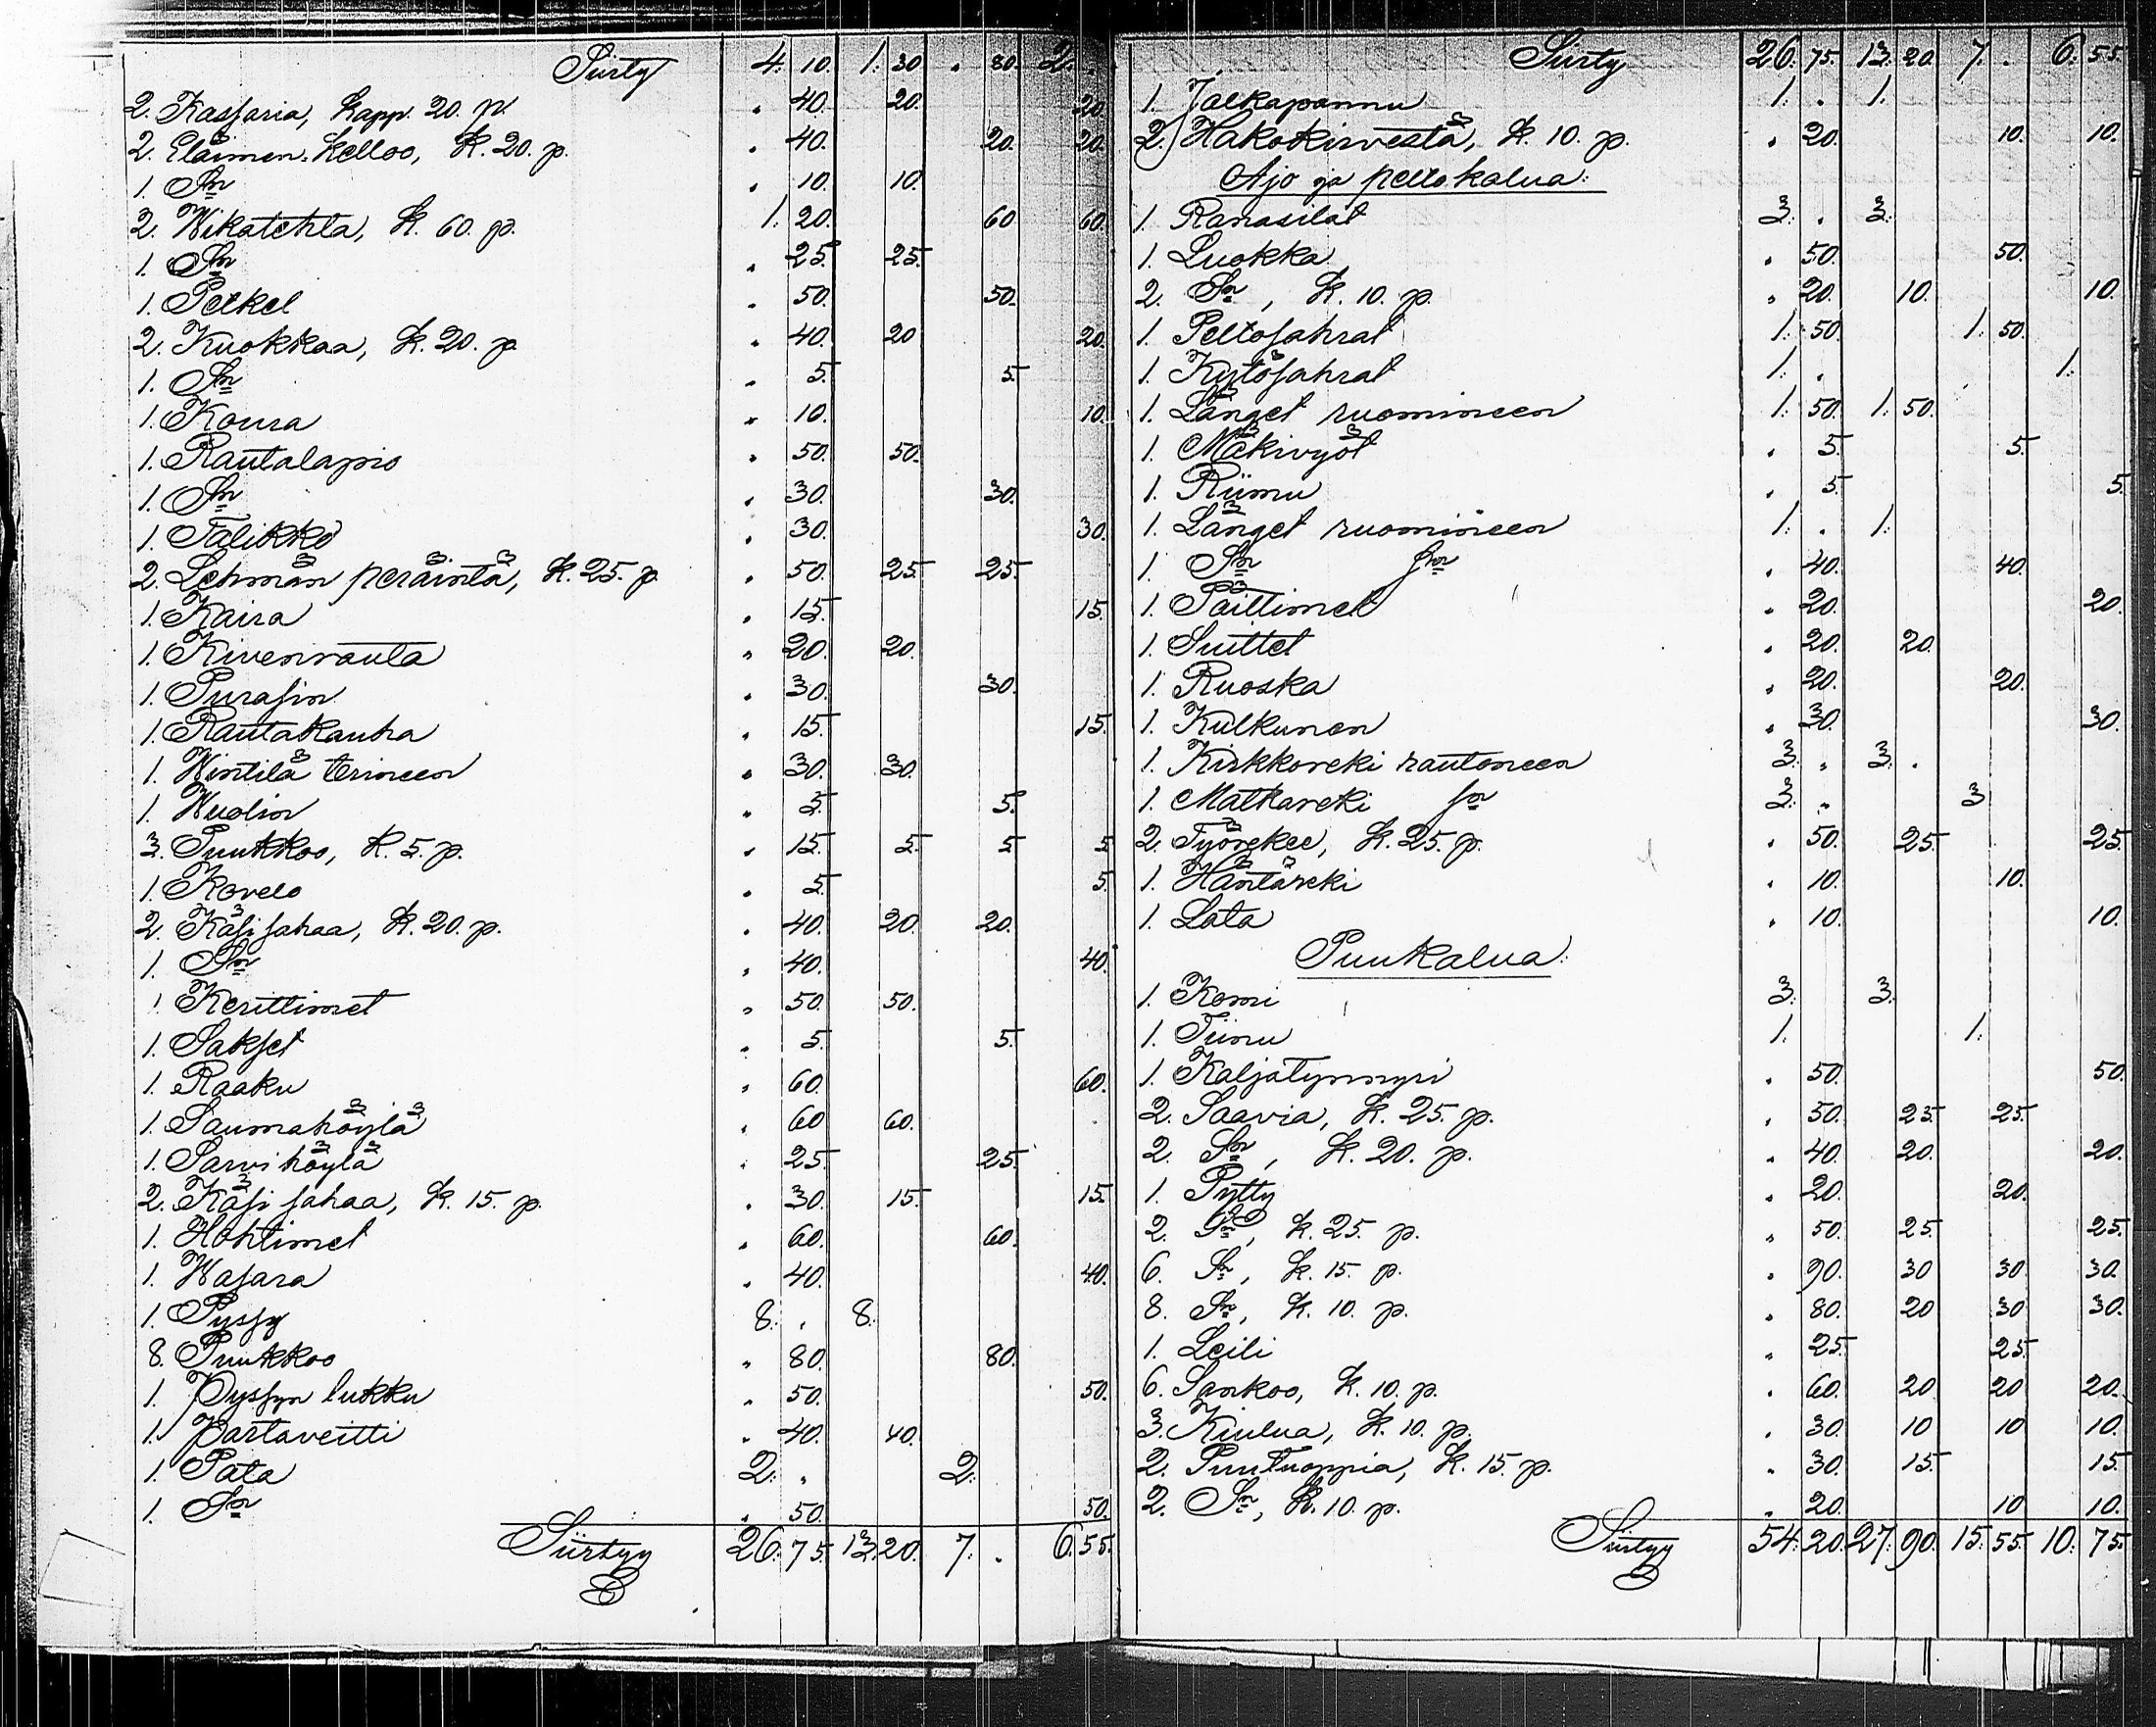 Siirty 4. 10. 1. 30 . 80. 2. .
2. Kassaria, kapp. 20. p. . 40. 20. 20
2. Eläimen kelloo, K. 20. p. . 40. 20. 20.
1. Sn . 10. 10.
2. Wikatehta, K. 60. p. 1. 20. 60 60.
1. Sn . 25. 25.
1. Petkel . 50. 50.
2. Kuokkaa, K. 20. p. . 40. 20 20.
1. Sn . 5. 5.
1. Koura . 10. 10.
1. Rautalapio . 50. 50.
1. Sn . 30. 30.
1. Talikko . 30. 30.
2. Lehmän peräintä, K. 25. p. . 50. 25. 25.
1. Kaira . 15. 15.
1. Kivenrauta . 20. 20.
1. Purasin . 30. 30.
1. Rautakauha . 15. 15.
1. Wintilä terineen . 30. 30.
1. Wuolin . 5. 5.
3. Puukkoo, K. 5. p. . 15. 5. 5 5
1. Kovelo . 5. 5.
2. Käsisahaa, K. 20. p. . 40. 20. 20.
1. Sn . 40. 40.
1. Kerittimet . 50. 50.
1. Sakset . 5. 5.
1. Raaku . 60. 60.
1. Saumahöylä . 60 60.
1. Sarvihöylä . 25. 25.
2. Käsi sahaa, K. 15. p. . 30. 15. 15.
1. Hohtimet . 60. 60.
1. Wasara . 40. 40.
1. Pyssy 8. . 8.
8. Puukkoo . 80. 80.
1. Pyssyn lukku . 50. 50.
1. Partaveitti . 40. 40.
1. Pata 2. . 2.
1. Sn . 50. 50.
Siirtyy 26. 75. 13. 20. 7. . 6. 55.
Siirty 26. 75. 13. 20. 7. . 6. 55.
1. Jalkapannu 1. . 1.
2. Hakokirvestä, K. 10. p. . 20. 10. 10.
Ajo ja peltokalua:
1. Ranasilat 3. . 3.
1. Luokka . 50. 50.
2. Sn, K. 10. p. . 20. 10. 10.
1. Peltosahrat 1. 50. 1. 50.
1. Kytösahrat 1. . 1.
1. Länget ruomineen 1. 50. 1. 50.
1. Mäkivyöt . 5. 5.
1. Riimu . 5. 5.
1. Länget ruomineen 1. . 1.
1. Sn sn . 40. 40.
1. Päittimet . 20. 20.
1. Suittet . 20. 20.
1. Ruoska . 20. 20.
1. Kulkunen . 30. 30.
1. Kirkkoreki rautoneen 3. . 3. .
1. Matkareki sn 3. . 3
2. Työrekee, K. 25. p. . 50. 25. 25.
1. Häntäreki . 10. 10.
1. Lata . 10. 10.
Puukalua:
1. Komi 3. 3.
1. Tiinu 1. 1.
1. Kaljatynnyri . 50. 50.
2. Saavia, K. 25. p. . 50. 25. 25.
2. Sn, K. 20. p. . 40. 20. 20.
1. Pytty . 20. 20.
2. Sn, K. 25. p. . 50. 25. 25.
6. Sn, K. 15. p. . 90. 30 30 30.
8. Sn, K. 10. p. . 80. 20 30 30.
1. Leili . 25. 25.
6. Sankoo, K. 10. p. . 60. 20 20 20.
3. Kiulua, K. 10. p. . 30. 10 10 10.
2. Puutuoppia, K. 15. p. . 30. 15. 15
2. Sn, K. 10. p. . 20. 10 10.
Siirtyy 54. 20. 27. 90. 15. 55. 10. 75.